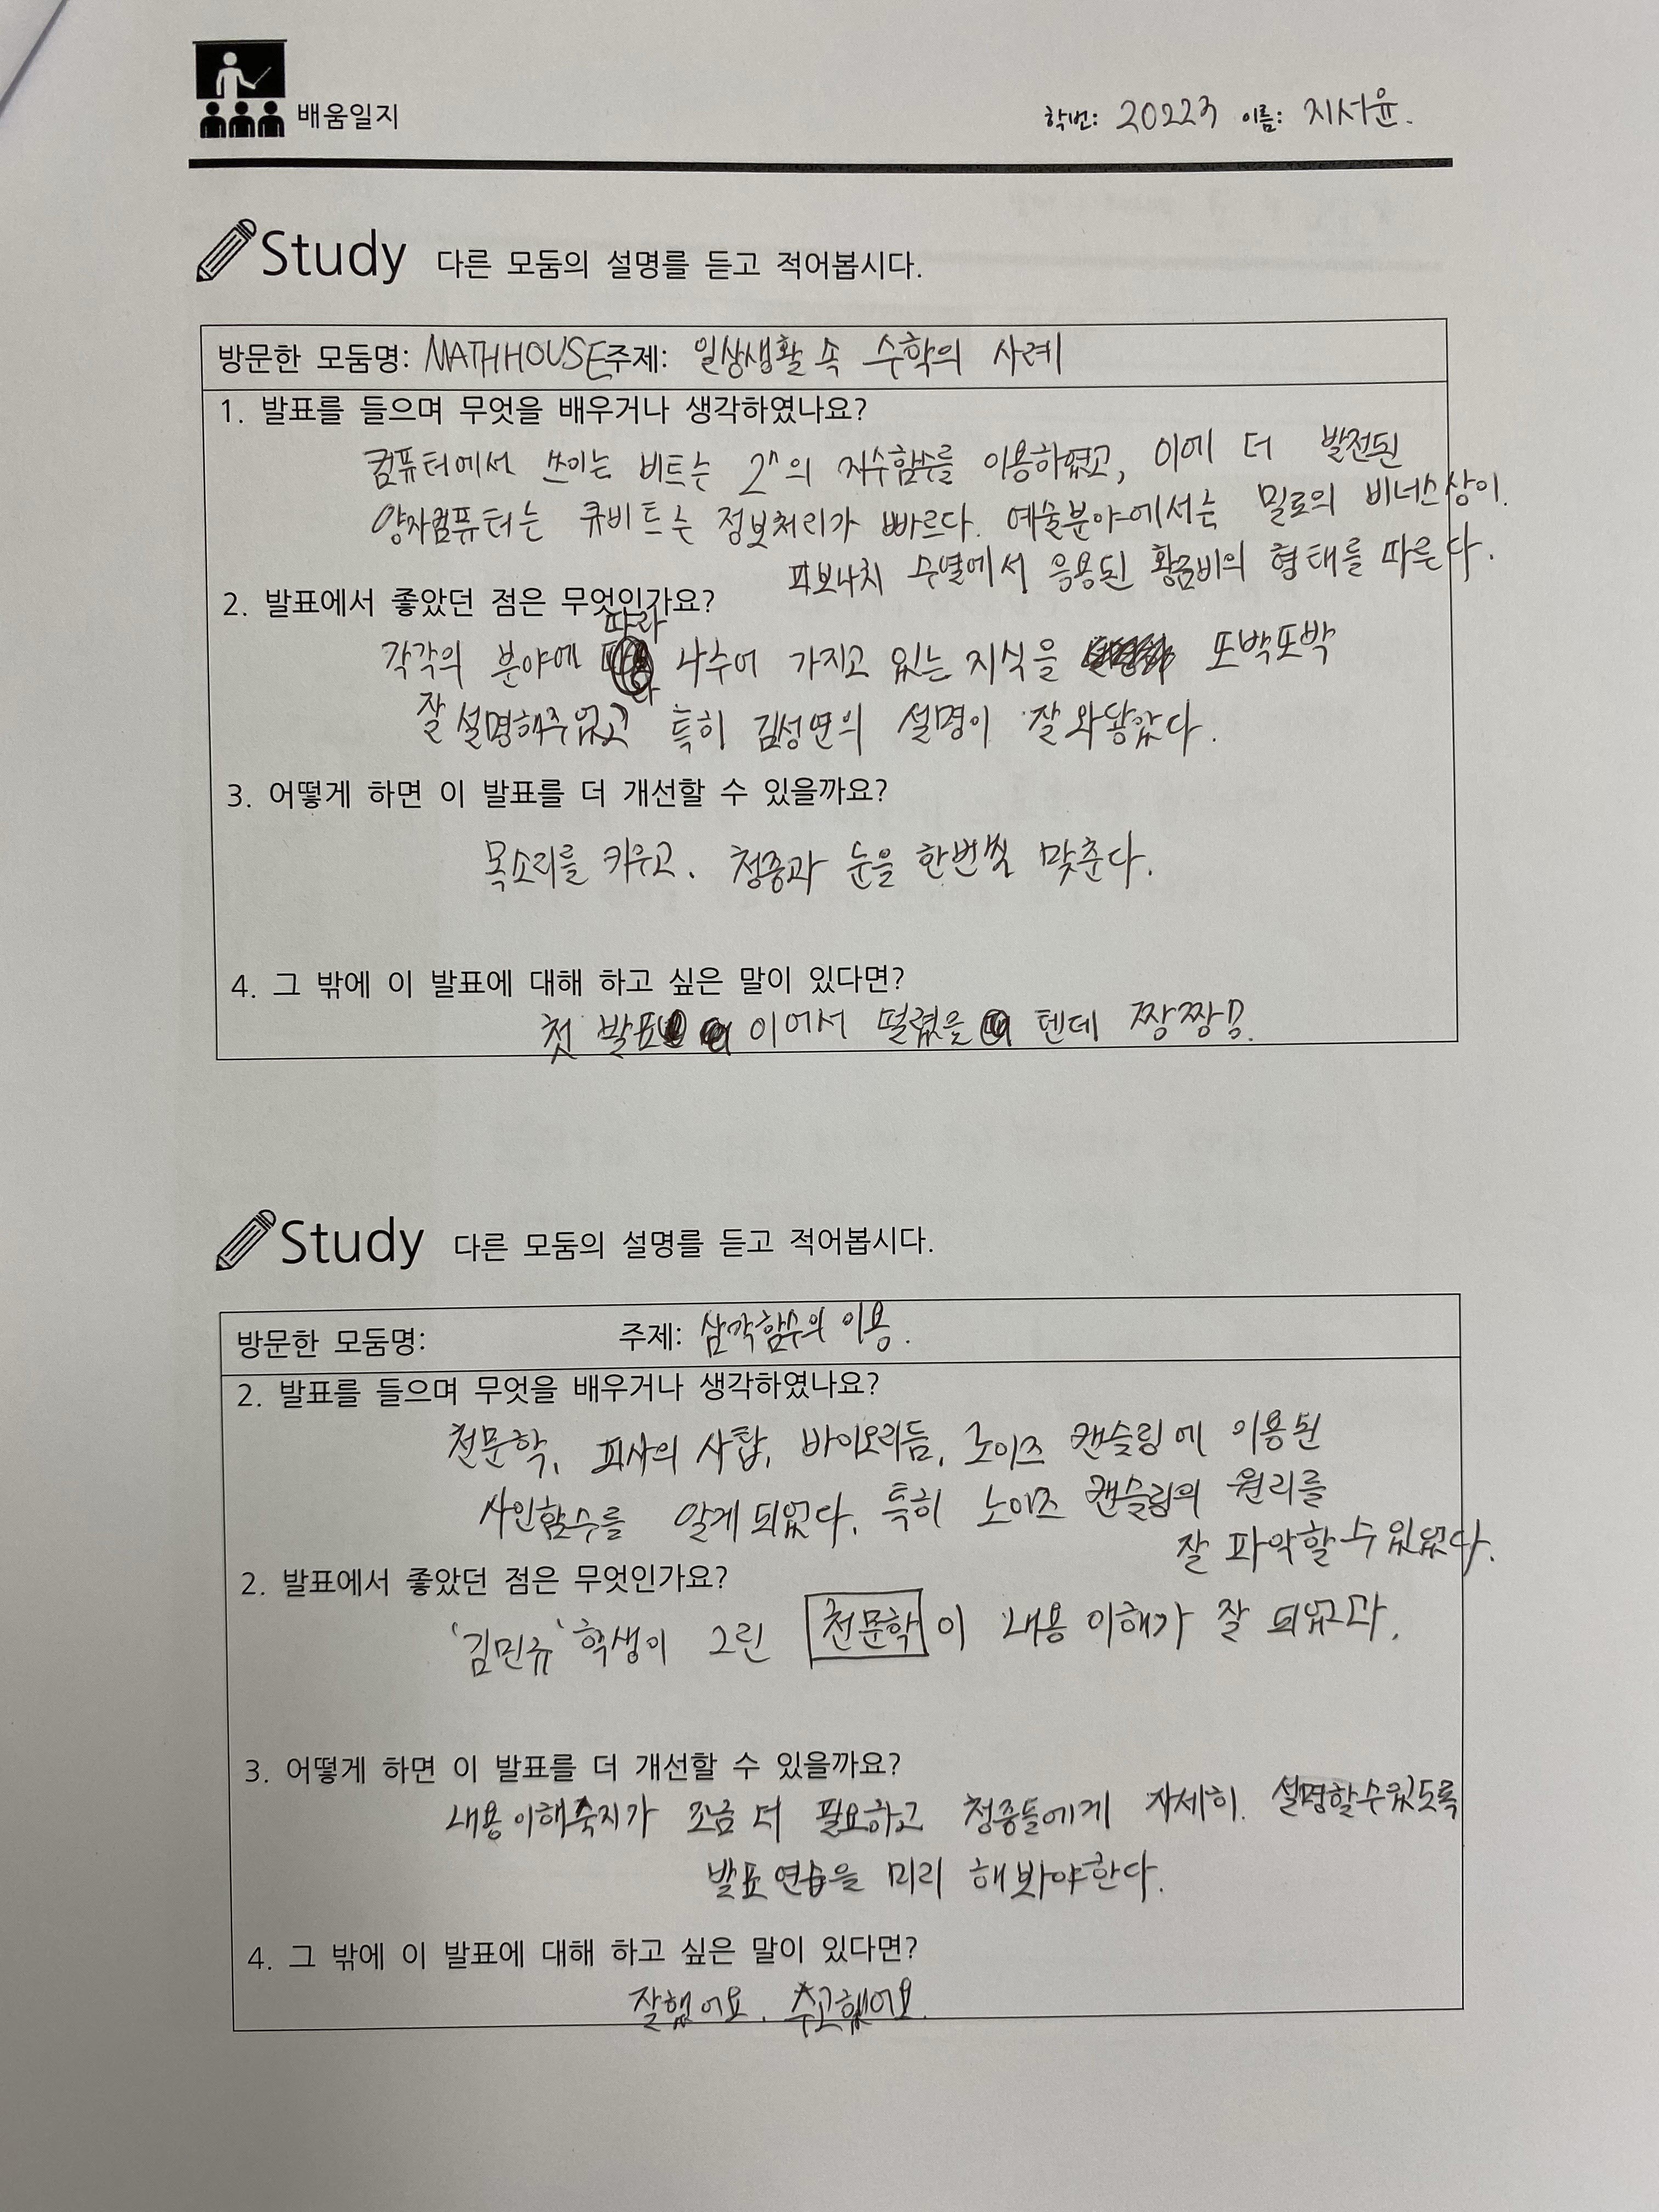 배움일지
학번: 20223 이름: 지서윤.
Study 다른 모둠의 설명를 듣고 적어봅시다.
방문한 모둠명: MATHHOUSE 주제: 일상생활 속 수학의 사례
1. 발표를 들으며 무엇을 배우거나 생각하였나요?
컴퓨터에서 쓰이는 비트는 2ⁿ의 지수함수를 이용하였고, 이에 더 발전된
양자컴퓨터는 큐비트는 정보처리가 빠르다. 예술분야에서는 밀로의 비너스상이.
피보나치 수열에서 응용된 황금비의 형태를 따른다.
2. 발표에서 좋았던 점은 무엇인가요?
각각의 분야에 따라 나추어 가지고 있는 지식을 또박또박
잘 설명해주었고 특히 김성연의 설명이 잘 와닿았다.
3. 어떻게 하면 이 발표를 더 개선할 수 있을까요?
목소리를 키우고. 청중과 눈을 한번씩 맞춘다.
4. 그 밖에 이 발표에 대해 하고 싶은 말이 있다면?
첫 발표 이어서 떨렸을 텐데 짱짱!!
Study 다른 모둠의 설명를 듣고 적어봅시다.
방문한 모둠명: 주제: 삼각함수의 이용.
2. 발표를 들으며 무엇을 배우거나 생각하였나요?
천문학, 피사의 사탑, 바이오리듬, 노이즈 캔슬링에 이용된
사인함수를 알게 되었다. 특히 노이즈 캔슬링의 원리를
잘 파악할 수 있었다.
2. 발표에서 좋았던 점은 무엇인가요?
'김민규' 학생이 그린 천문학이 내용 이해가 잘 되었다.
3. 어떻게 하면 이 발표를 더 개선할 수 있을까요?
내용 이해숙지가 조금 더 필요하고 청중들에게 자세히. 설명할수있도록
발표연습을 미리 해봐야한다.
4. 그 밖에 이 발표에 대해 하고 싶은 말이 있다면?
잘했어요. 수고했어요.